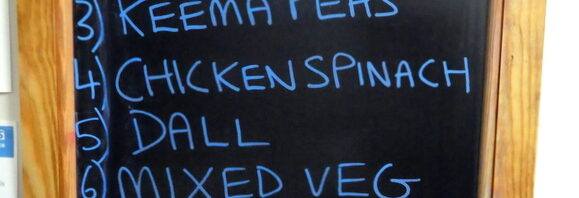 3) KEEMA PEAS
4) CHICKEN SPINACH
5) DALL
6) MIXED VEG